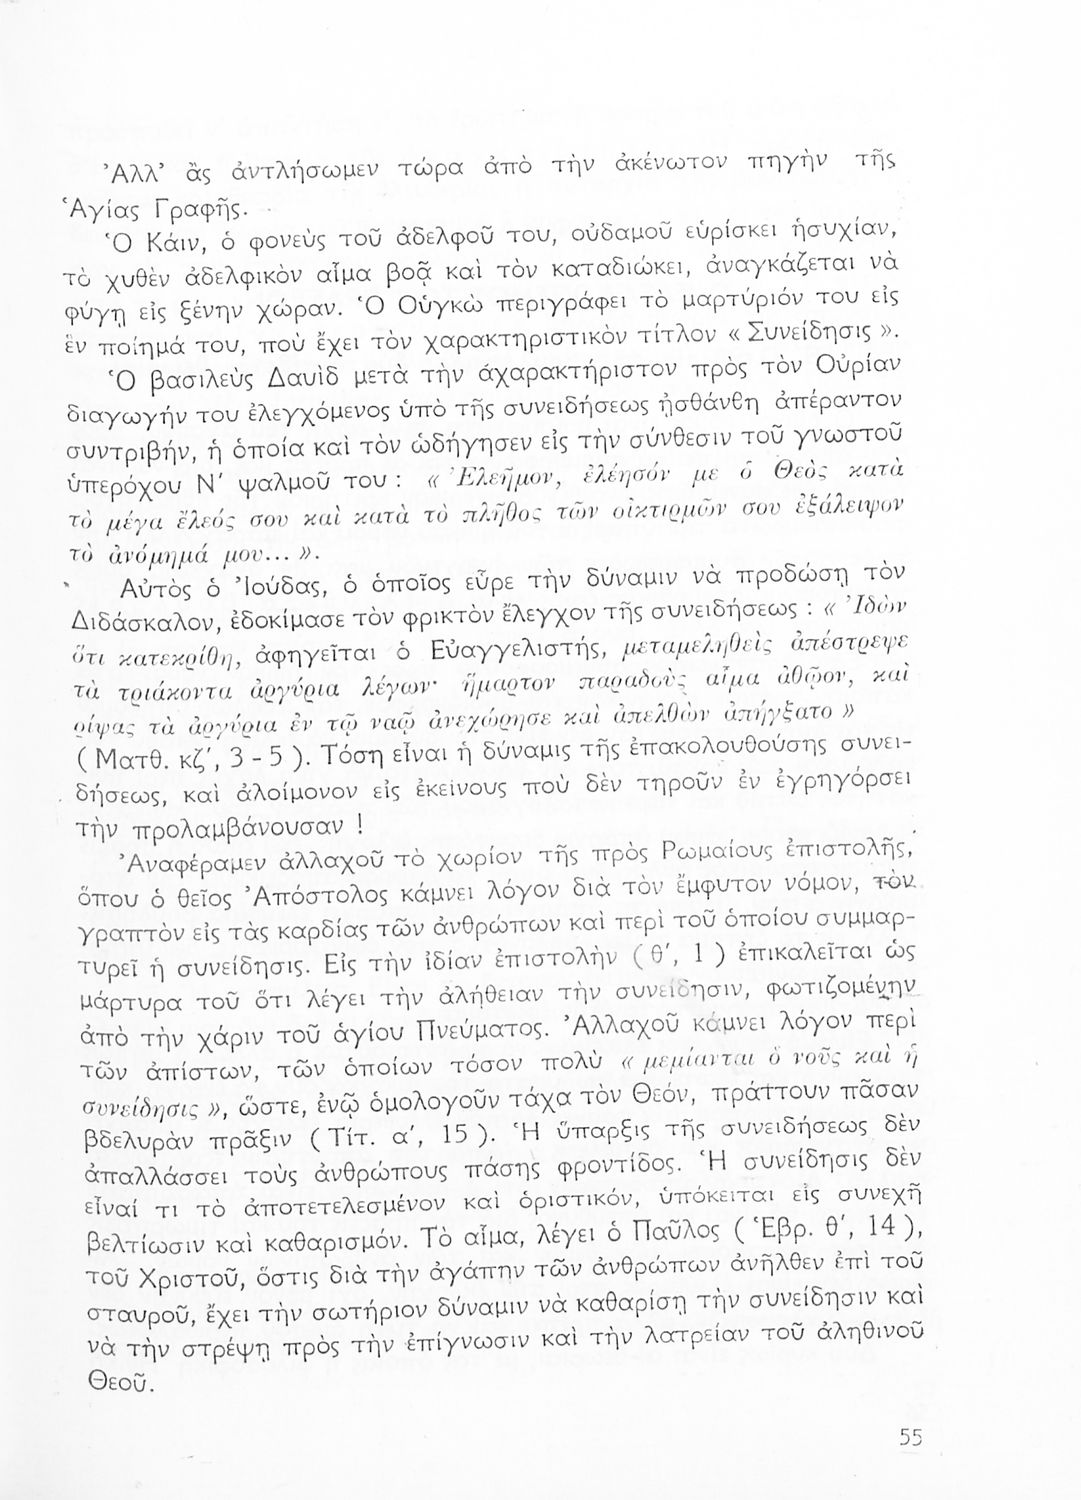 Ἀλλ’ ἂς ἀντλήσωμεν τώρα ἀπὸ τὴν ἀκένωτον πηγὴν τῆς
Ἁγίας Γραφῆς.
Ὁ Κάιν, ὁ φονεὺς τοῦ ἀδελφοῦ του, οὐδαμοῦ εὑρίσκει ἡσυχίαν,
τὸ χυθὲν ἀδελφικὸν αἷμα βοᾷ καὶ τὸν καταδιώκει, ἀναγκάζεται νὰ
φύγῃ εἰς ξένην χώραν. Ὁ Οὑγκὼ περιγράφει τὸ μαρτύριόν του εἰς
ἓν ποίημά του, ποὺ ἔχει τὸν χαρακτηριστικὸν τίτλον « Συνείδησις ».
Ὁ βασιλεὺς Δαυὶδ μετὰ τὴν ἀχαρακτήριστον πρὸς τὸν Οὐρίαν
διαγωγήν του ἐλεγχόμενος ὑπὸ τῆς συνειδήσεως ᾐσθάνθη ἀπέραντον
συντριβήν, ἡ ὁποία καὶ τὸν ὡδήγησεν εἰς τὴν σύνθεσιν τοῦ γνωστοῦ
ὑπερόχου Ν′ ψαλμοῦ του : « Ἐλεῆμον, ἐλέησόν με ὁ Θεὸς κατὰ
τὸ μέγα ἔλεός σου καὶ κατὰ τὸ πλῆθος τῶν οἰκτιρμῶν σου ἐξάλειψον
τὸ ἀνόμημά μου... ».
Αὐτὸς ὁ Ἰούδας, ὁ ὁποῖος εὗρε τὴν δύναμιν νὰ προδώσῃ τὸν
Διδάσκαλον, ἐδοκίμασε τὸν φρικτὸν ἔλεγχον τῆς συνειδήσεως : « Ἰδὼν
ὅτι κατεκρίθη, ἀφηγεῖται ὁ Εὐαγγελιστής, μεταμεληθεὶς ἀπέστρεψε
τὰ τριάκοντα ἀργύρια λέγων· ἥμαρτον παραδοὺς αἷμα ἀθῷον, καὶ
ρίψας τὰ ἀργύρια ἐν τῷ ναῷ ἀνεχώρησε καὶ ἀπελθὼν ἀπήγξατο »
( Ματθ. κζ′, 3 - 5 ). Τόση εἶναι ἡ δύναμις τῆς ἐπακολουθούσης συνει-
δήσεως, καὶ ἀλοίμονον εἰς ἐκείνους ποὺ δὲν τηροῦν ἐν ἐγρηγόρσει
τὴν προλαμβάνουσαν !
Ἀναφέραμεν ἀλλαχοῦ τὸ χωρίον τῆς πρὸς Ρωμαίους ἐπιστολῆς,
ὅπου ὁ θεῖος Ἀπόστολος κάμνει λόγον διὰ τὸν ἔμφυτον νόμον, τὸν
γραπτὸν εἰς τὰς καρδίας τῶν ἀνθρώπων καὶ περὶ τοῦ ὁποίου συμμαρ-
τυρεῖ ἡ συνείδησις. Εἰς τὴν ἰδίαν ἐπιστολὴν ( θ′, 1 ) ἐπικαλεῖται ὡς
μάρτυρα τοῦ ὅτι λέγει τὴν ἀλήθειαν τὴν συνείδησιν, φωτιζομένην
ἀπὸ τὴν χάριν τοῦ ἁγίου Πνεύματος. Ἀλλαχοῦ κάμνει λόγον περὶ
τῶν ἀπίστων, τῶν ὁποίων τόσον πολὺ « μεμίανται ὁ νοῦς καὶ ἡ
συνείδησις », ὥστε, ἐνῷ ὁμολογοῦν τάχα τὸν Θεόν, πράττουν πᾶσαν
βδελυρὰν πρᾶξιν ( Τίτ. α′, 15 ). Ἡ ὕπαρξις τῆς συνειδήσεως δὲν
ἀπαλλάσσει τοὺς ἀνθρώπους πάσης φροντίδος. Ἡ συνείδησις δὲν
εἶναί τι τὸ ἀποτετελεσμένον καὶ ὁριστικόν, ὑπόκειται εἰς συνεχῆ
βελτίωσιν καὶ καθαρισμόν. Τὸ αἷμα, λέγει ὁ Παῦλος ( Ἑβρ. θ′, 14 ),
τοῦ Χριστοῦ, ὅστις διὰ τὴν ἀγάπην τῶν ἀνθρώπων ἀνῆλθεν ἐπὶ τοῦ
σταυροῦ, ἔχει τὴν σωτήριον δύναμιν νὰ καθαρίσῃ τὴν συνείδησιν καὶ
νὰ τὴν στρέψῃ πρὸς τὴν ἐπίγνωσιν καὶ τὴν λατρείαν τοῦ ἀληθινοῦ
Θεοῦ.
55